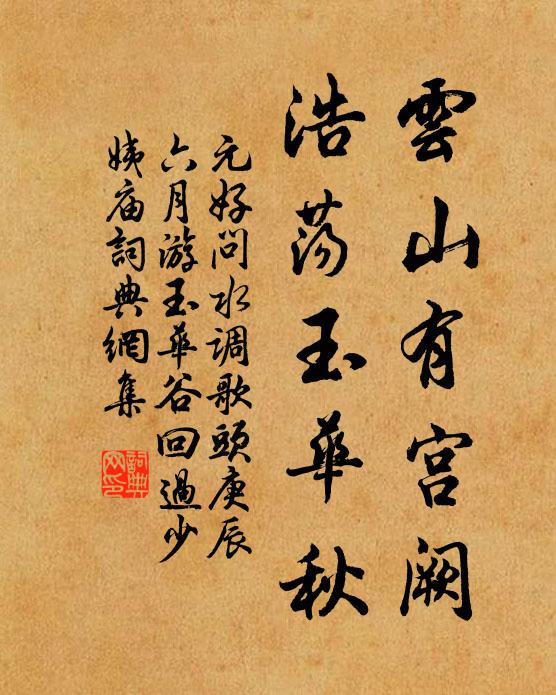 雲山有宮闕
浩荡玉華秋
元好问水调歌頭庚辰
六月游玉華谷回過少
姨庙詞典網集
詞典网印